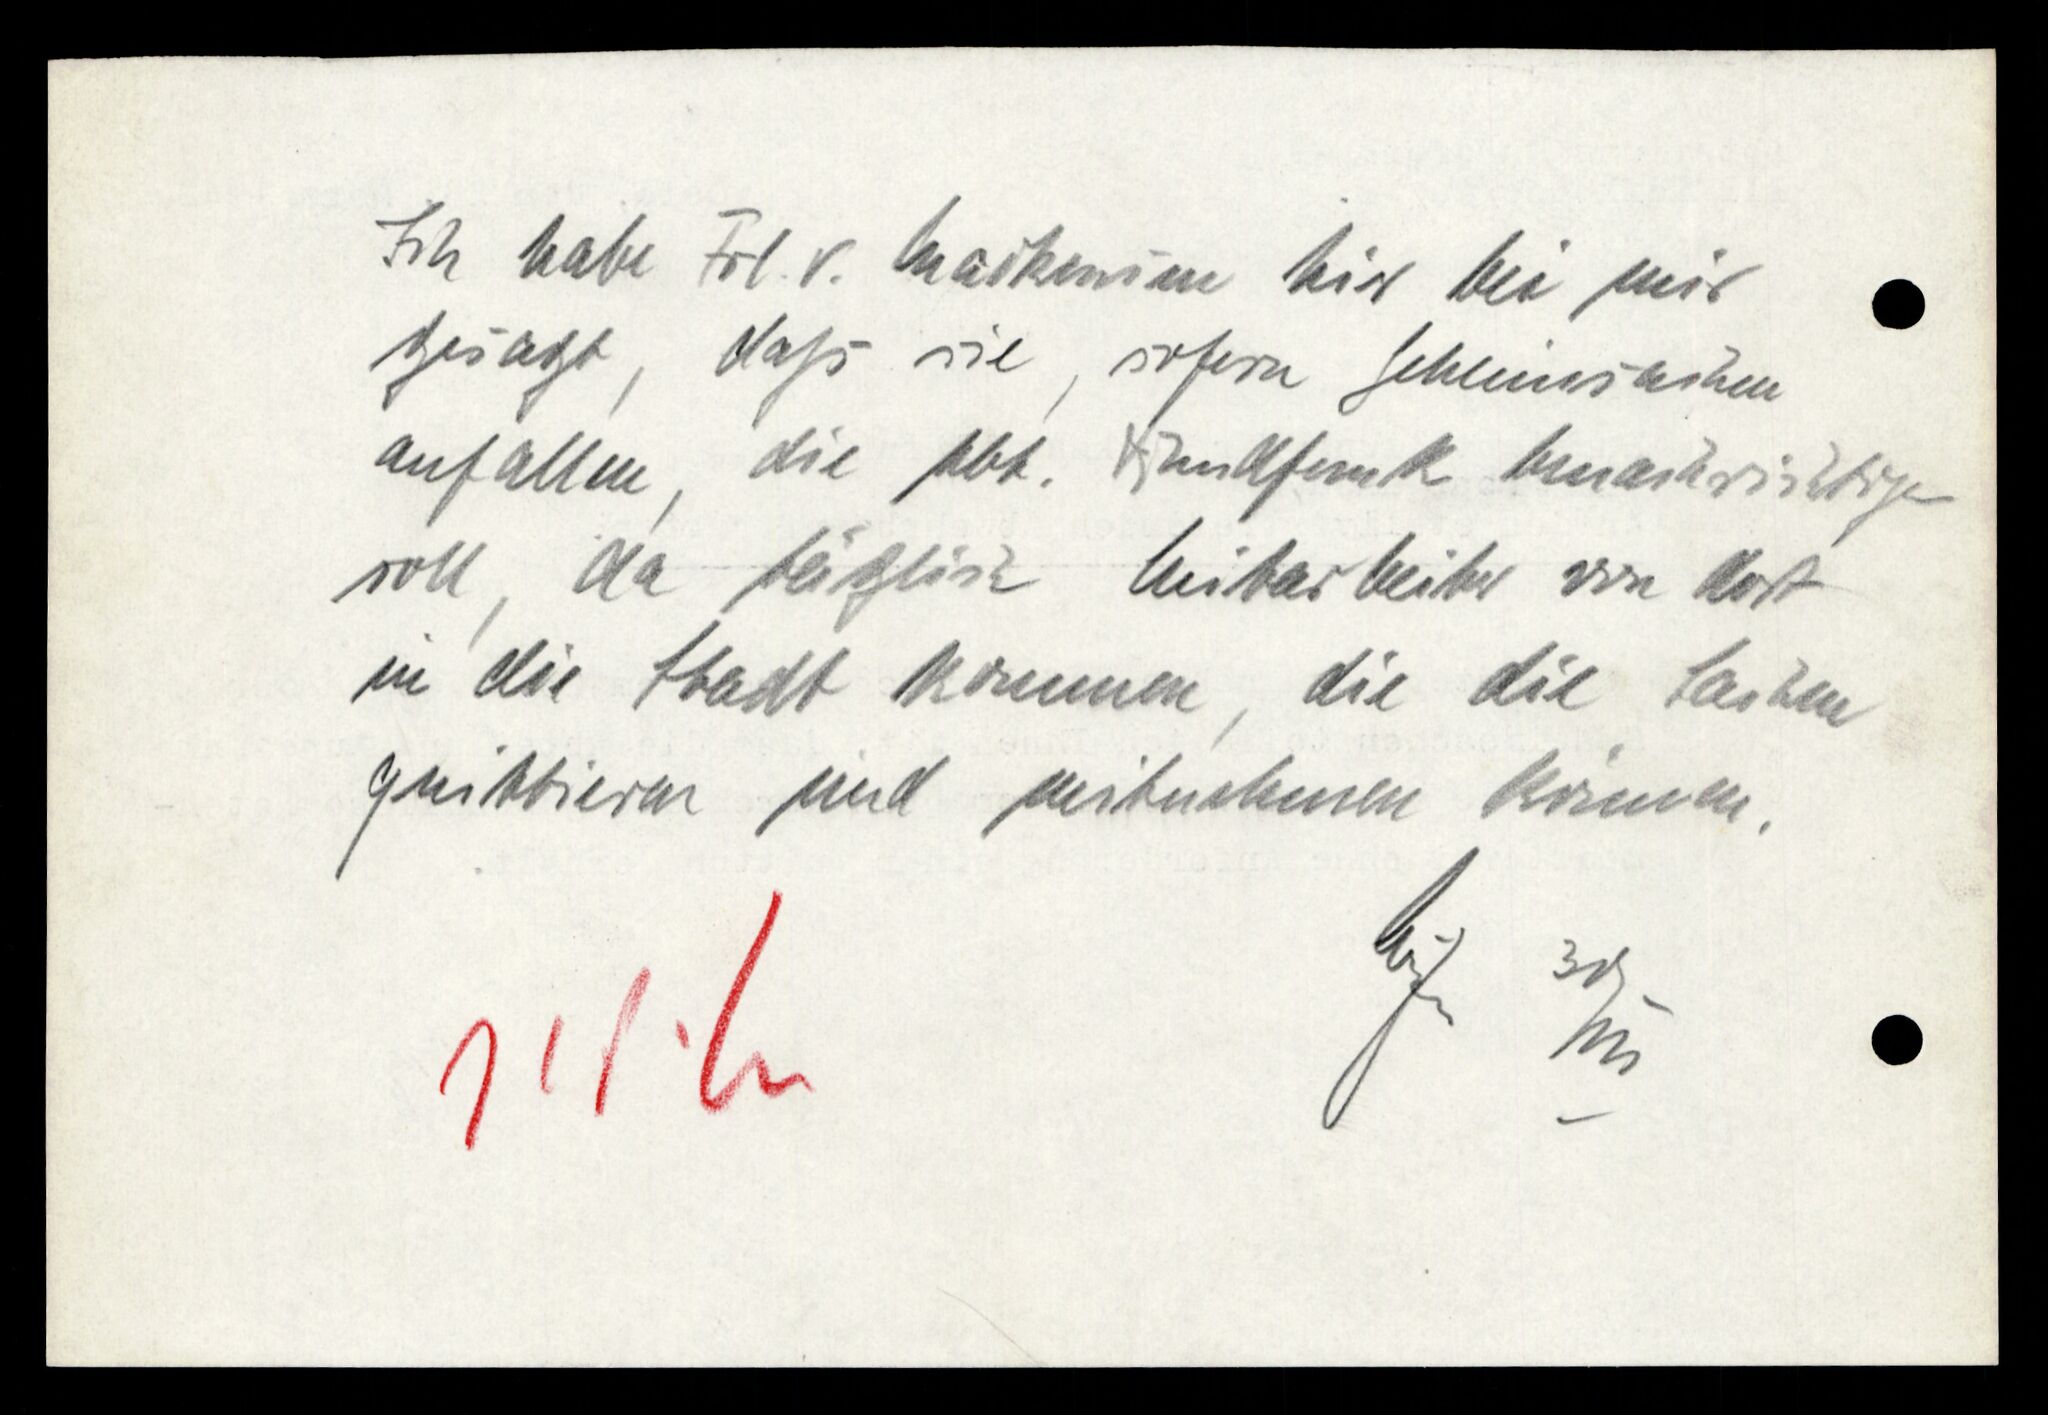 Ich habe Frl. v. Mackensen hier bei mir
gesagt, daß sie, sofern Geheimsachen
anfallen, die Abt. Rundfunk benachrichtigen
soll, da täglich Mitarbeiter von dort
in die Stadt kommen, die die Sachen
quittieren und mitnehmen können.